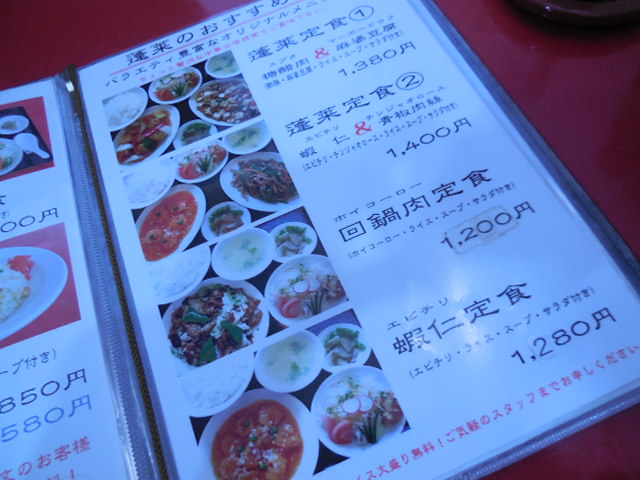 蓬莱のおすすめ
バラエティ豊富なオリジナルメニ
蓬莱定食①
スブタ マーボードウフ
糖醋肉&麻婆豆腐
(酢豚・麻婆豆腐・ライス・スープ・サラダ付き)
1,380円
蓬莱定食②
エビチリ チンジャオロース
蝦仁&青椒肉絲
(エビチリ・チンジャオロース・ライス・スープ・サラダ付き)
1,400円
ホイコーロー
回鍋肉定食
(ホイコーロー・ライス・スープ・サラダ付き)
1,200円
エビチリ
蝦仁定食
(エビチリ・ライス・スープ・サラダ付き)
1,280円
イス大盛り無料!ご気軽のスタッフまでお申しください
食
00円
ープ付き)
850円
580円
文のお客様
料!